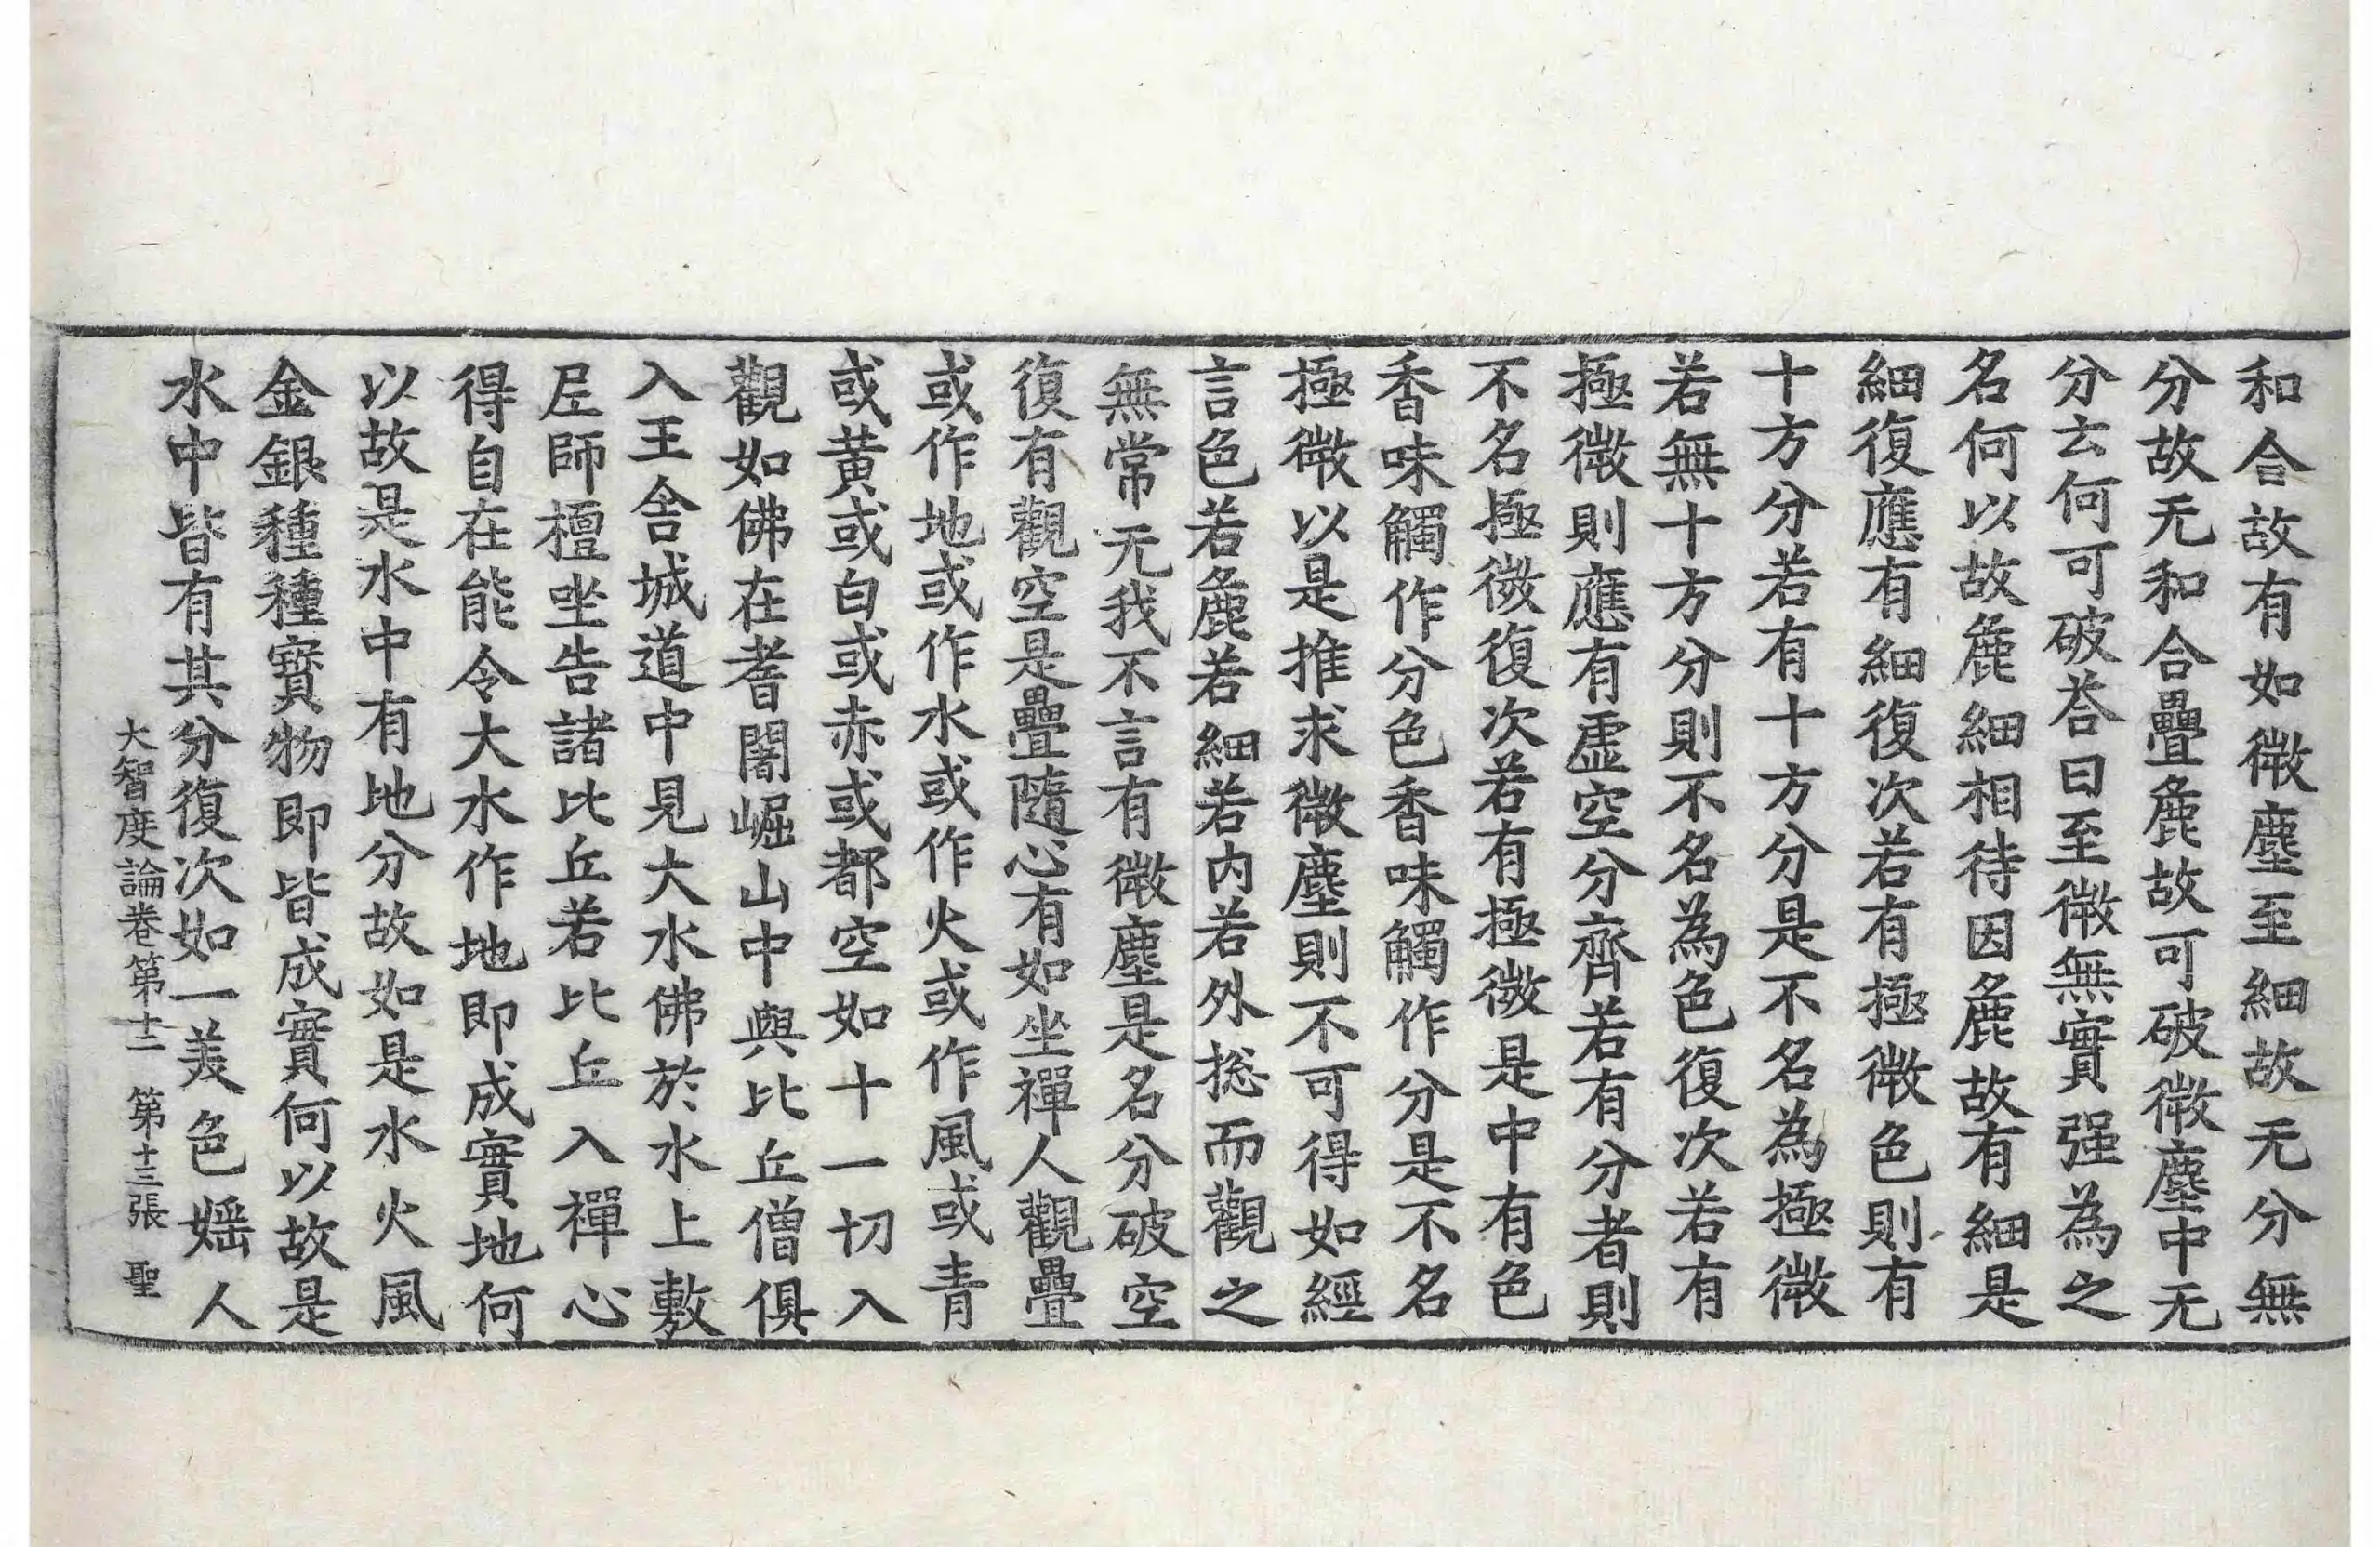 和合故有如微塵至細故无分無
分故无和合疊麁故可破微塵中无
分云何可破荅曰至微無實强為之
名何以故麁細相待因麁故有細是
細復應有細復次若有極微色則有
十方分若有十方分是不名為極微
若無十方分則不名為色復次若有
極微則應有虛空分齊若有分者則
不名極微復次若有極微是中有色
香味觸作分色香味觸作分是不名
極微以是推求微塵則不可得如經
言色若麁若細若内若外揔而觀之
無常无我不言有微塵是名分破空
復有觀空是疊隨心有如坐禪人觀疊
或作地或作水或作火或作風或青
或黄或白或赤或都空如十一切入
觀如佛在耆闍崛山中與比丘僧俱
入王舍城道中見大水佛於水上敷
尼師檀坐告諸比丘若比丘入禪心
得自在能令大水作地即成實地何
以故是水中有地分故如是水火風
金銀種種寳物即皆成實何以故是
水中皆有其分復次如一美色婬人
大智度論卷第十二 第十三張 聖